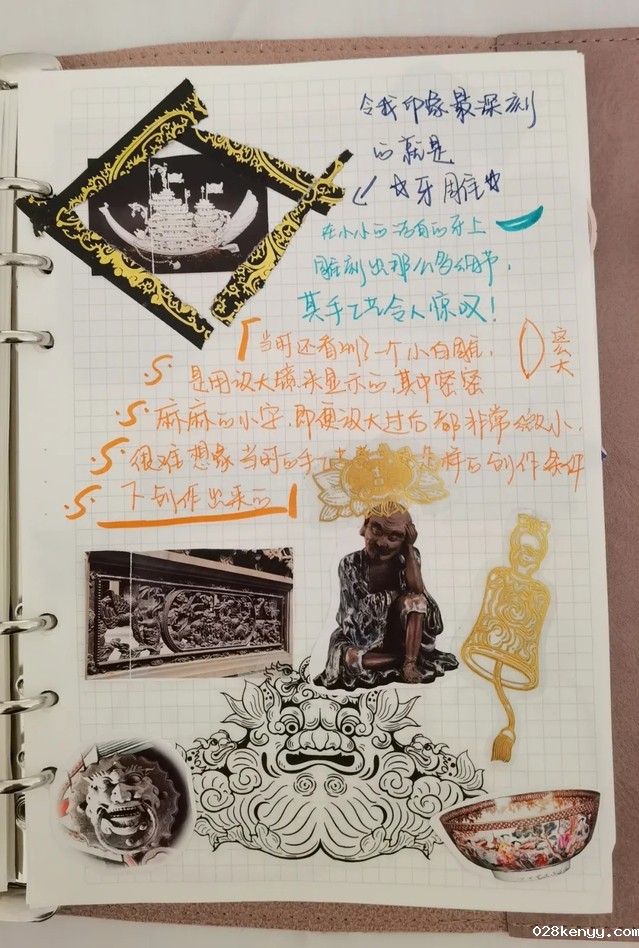 令我印象最深刻
的就是
☆牙雕☆
在小小的洁白的牙上
雕刻出那么多细节，
其手工艺令人惊叹！
「当时还看到了一个小白雕，
是用放大镜来显示的，其中密密
麻麻的小字，即便放大过后都非常微小，
很难想象当时的手工 样的创作条件
下创作出来的
028kenyy.com